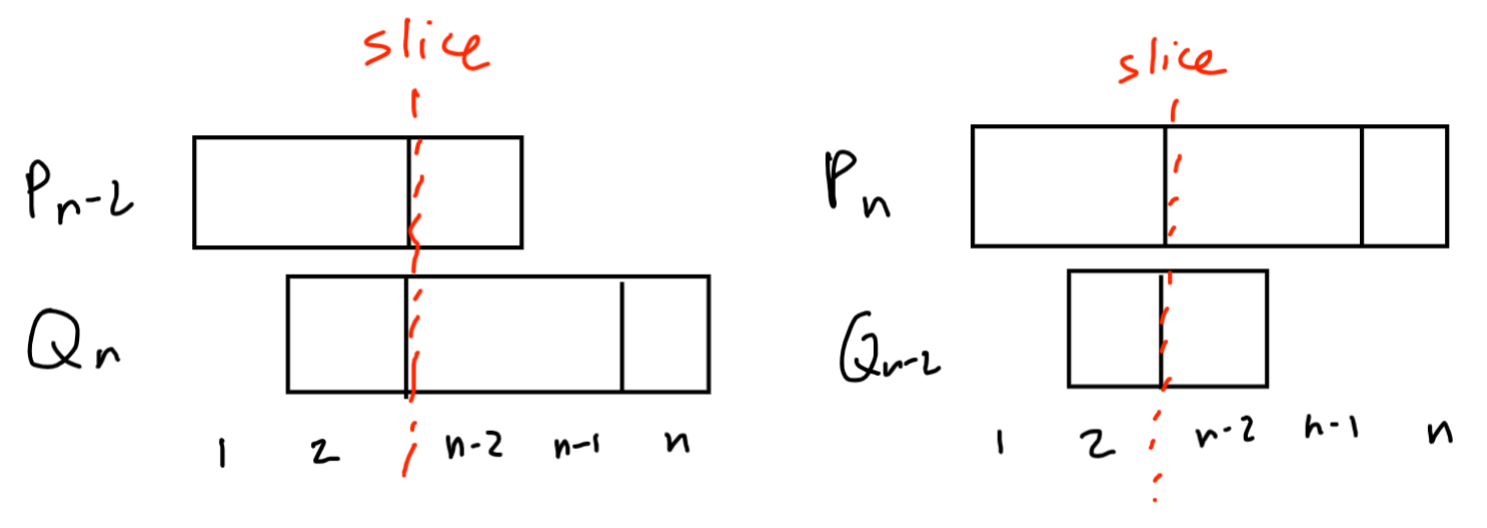 slice
P_{n-2}
Q_n
1 2 n-2 n-1 n
slice
P_n
Q_{n-2}
1 2 n-2 n-1 n